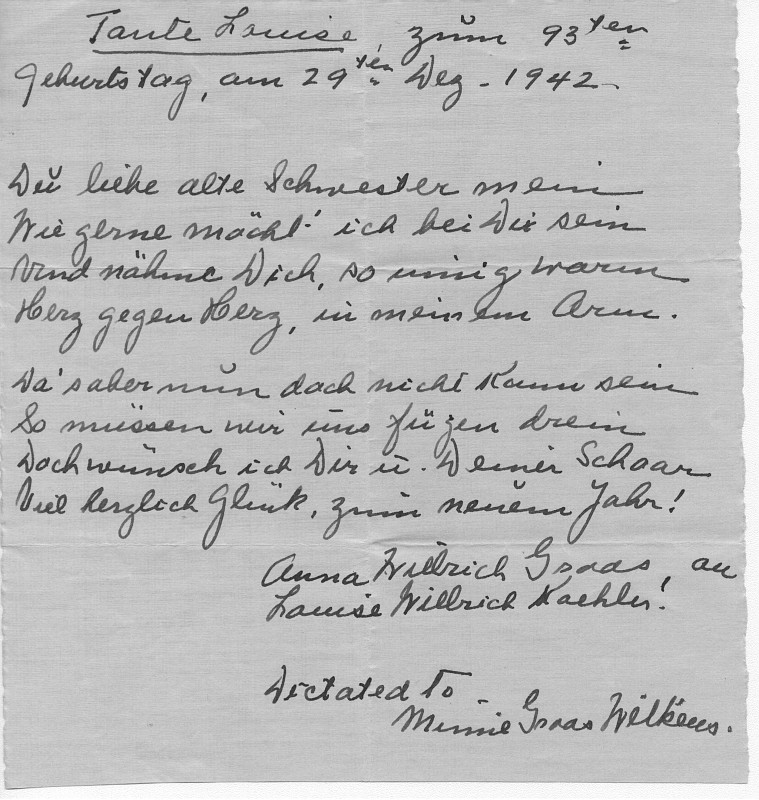 Tante Louise, zum 93ten
Geburtstag, am 29ten Dez - 1942 -
Du liebe alte Schwester mein
Wie gerne möcht' ich bei Dir sein
Und nähme Dich, so innig warm
Herz gegen Herz, in meinem Arm.
Da's aber nun doch nicht kann sein
So müssen wir uns fügen drein
Doch wünsch ich Dir u. Deiner Schaar
Viel herzlich Glück, zum neuem Jahr!
Anna Willrich Graas, an
Louise Willrich Koehler!
Dictated to
Minnie Graas Wilkens.